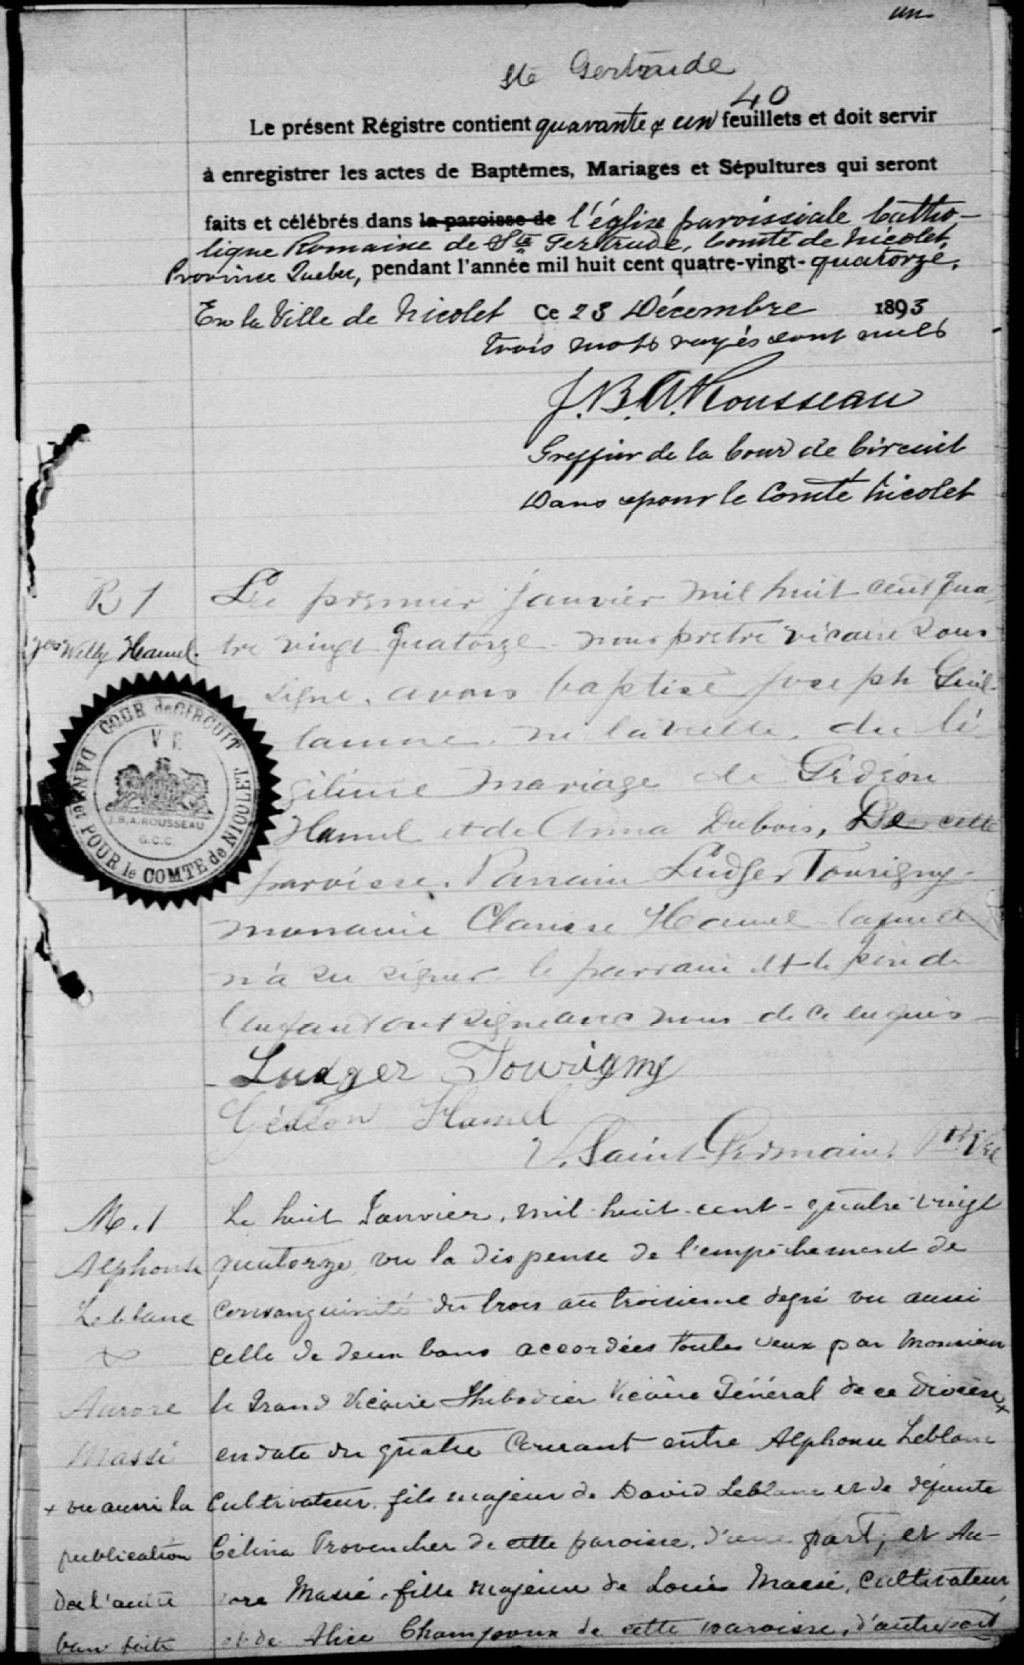 un
Ste Gertrude
40
Le présent Régistre contient quarante & un feuillets et doit servir
à enregistrer les actes de Baptêmes, Mariages et Sépultures qui seront
faits et célébrés dans la paroisse de l'église paroissiale Catho-
lique Romaine de Ste Gertrude, Comté de Nicolet,
Province Quebec, pendant l'année mil huit cent quatre-vingt-quatorze.
En la Ville de Nicolet Ce 23 Décembre 1893
trois mots rayés sont nuls
J.B.A. Rousseau
Greffier de la Cour de Circuit
Dans & pour le Comté Nicolet
B 1
Jos Willy Hamel.
Le premier Janvier mil huit cent qua-
tre vingt quatorze nous prêtre vicaire sous
signé, avons baptisé Joseph Guil-
laume né la veille, du lé-
gitime mariage de Gédéon
Hamel et de Anna Dubois, De cette
paroisse. Parrain Ludger Tourigny
marraine Clarisse Hamel laquelle
n'a su signer le parrain et le père de
l'enfant ont signé avec nous de ce enquis
Ludger Tourigny
Gédéon Hamel
V. Saint-Germain, Ptre Vic
COUR de CIRCUIT
DANS et POUR le COMTE de NICOLET
V R
J.B.A. ROUSSEAU
G.C.C.
M. 1
Alphonse
Leblanc
&
Aurore
Massé
+ vu aussi la
publication
de l'autre
ban faite
Le huit Janvier, mil-huit-cent-quatre-vingt
quatorze, vu la dispense de l'empêchement de
consanguinité du trois au troisieme degré vu aussi
celle de deux bans accordées toutes deux par Monsieur
le Grand Vicaire Thibodier Vicaire Général de ce diocèse +
en date du quatre Courant entre Alphonse Leblanc
Cultivateur, fils majeur de David Leblanc et de défunte
Célina Provencher de cette paroisse, d'une part; et Au-
rore Massé, fille majeure de Louis Massé, Cultivateur,
et de Alice Champoux de cette paroisse, d'autre part